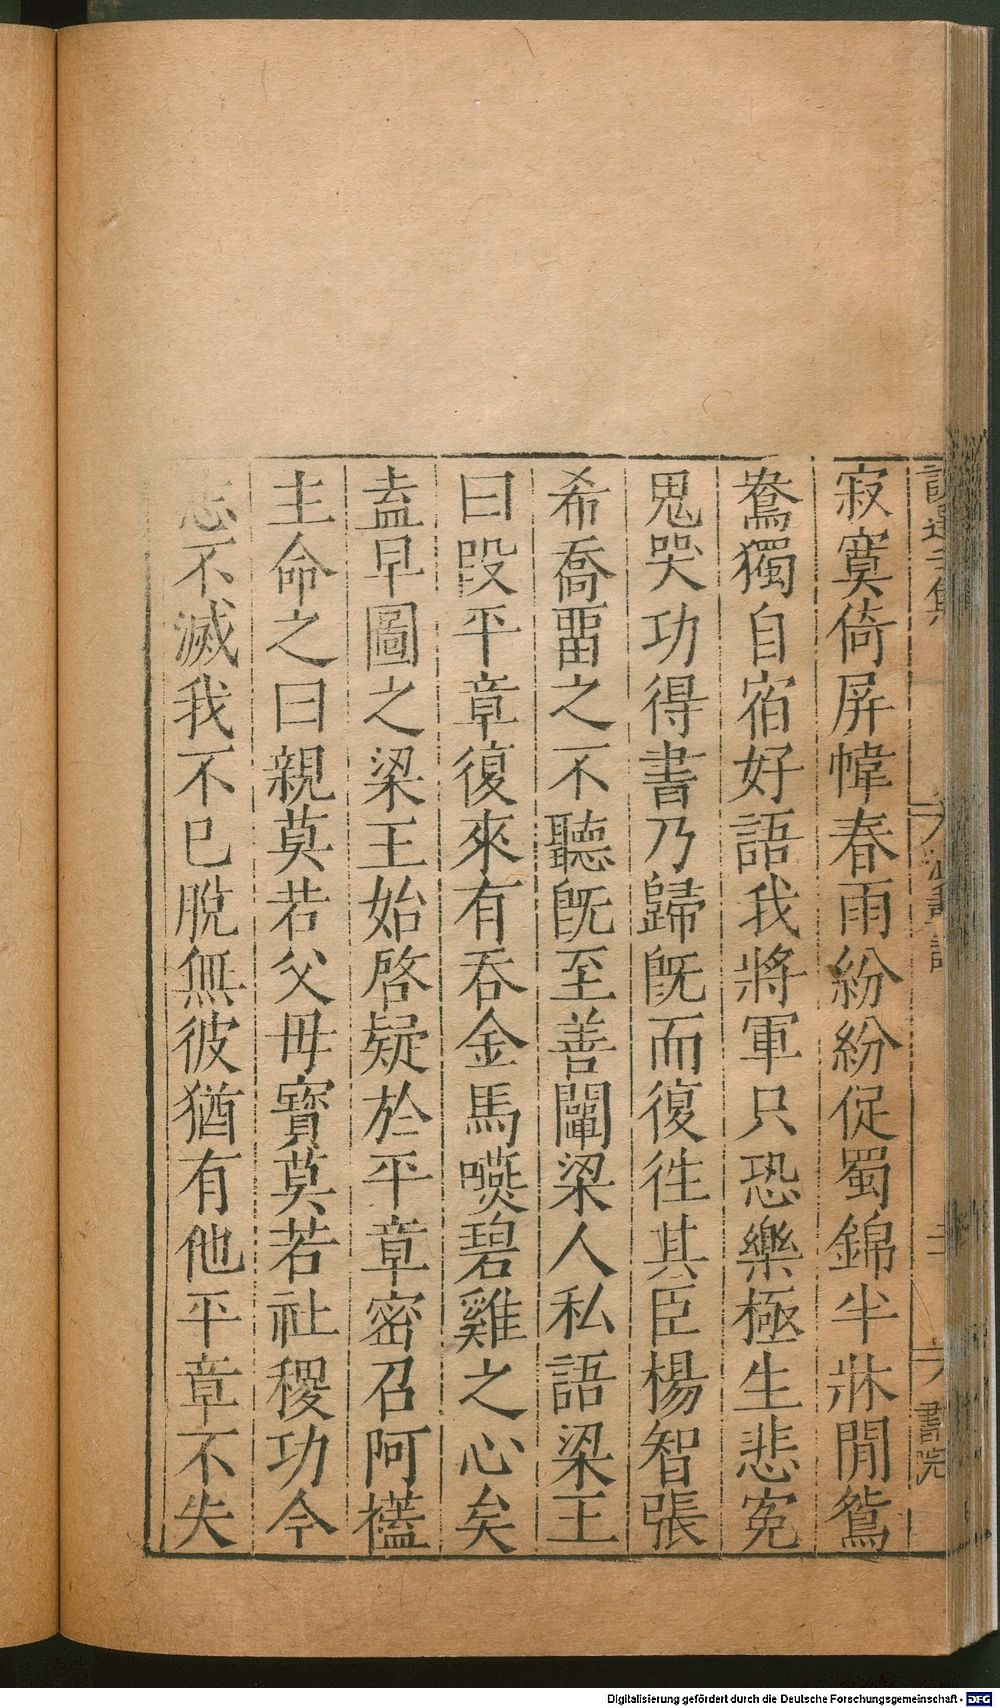 寂寞倚屏幃春雨紛紛促蜀錦半牀閒鴛
鴦獨自宿好語我將軍只恐樂極生悲寃
鬼哭功得書乃歸旣而復徃其臣楊智張
希喬畱之不聽旣至善闡梁人私語梁王
曰段平章復來有吞金馬嚥碧雞之心矣
盍早圖之梁王始啓疑於平章密召阿𧜵
主命之曰親莫若父母寳莫若社稷功今
志不滅我不已脫無彼猶有他平章不失
書院
Digitalisierung gefördert durch die Deutsche Forschungsgemeinschaft - DFG